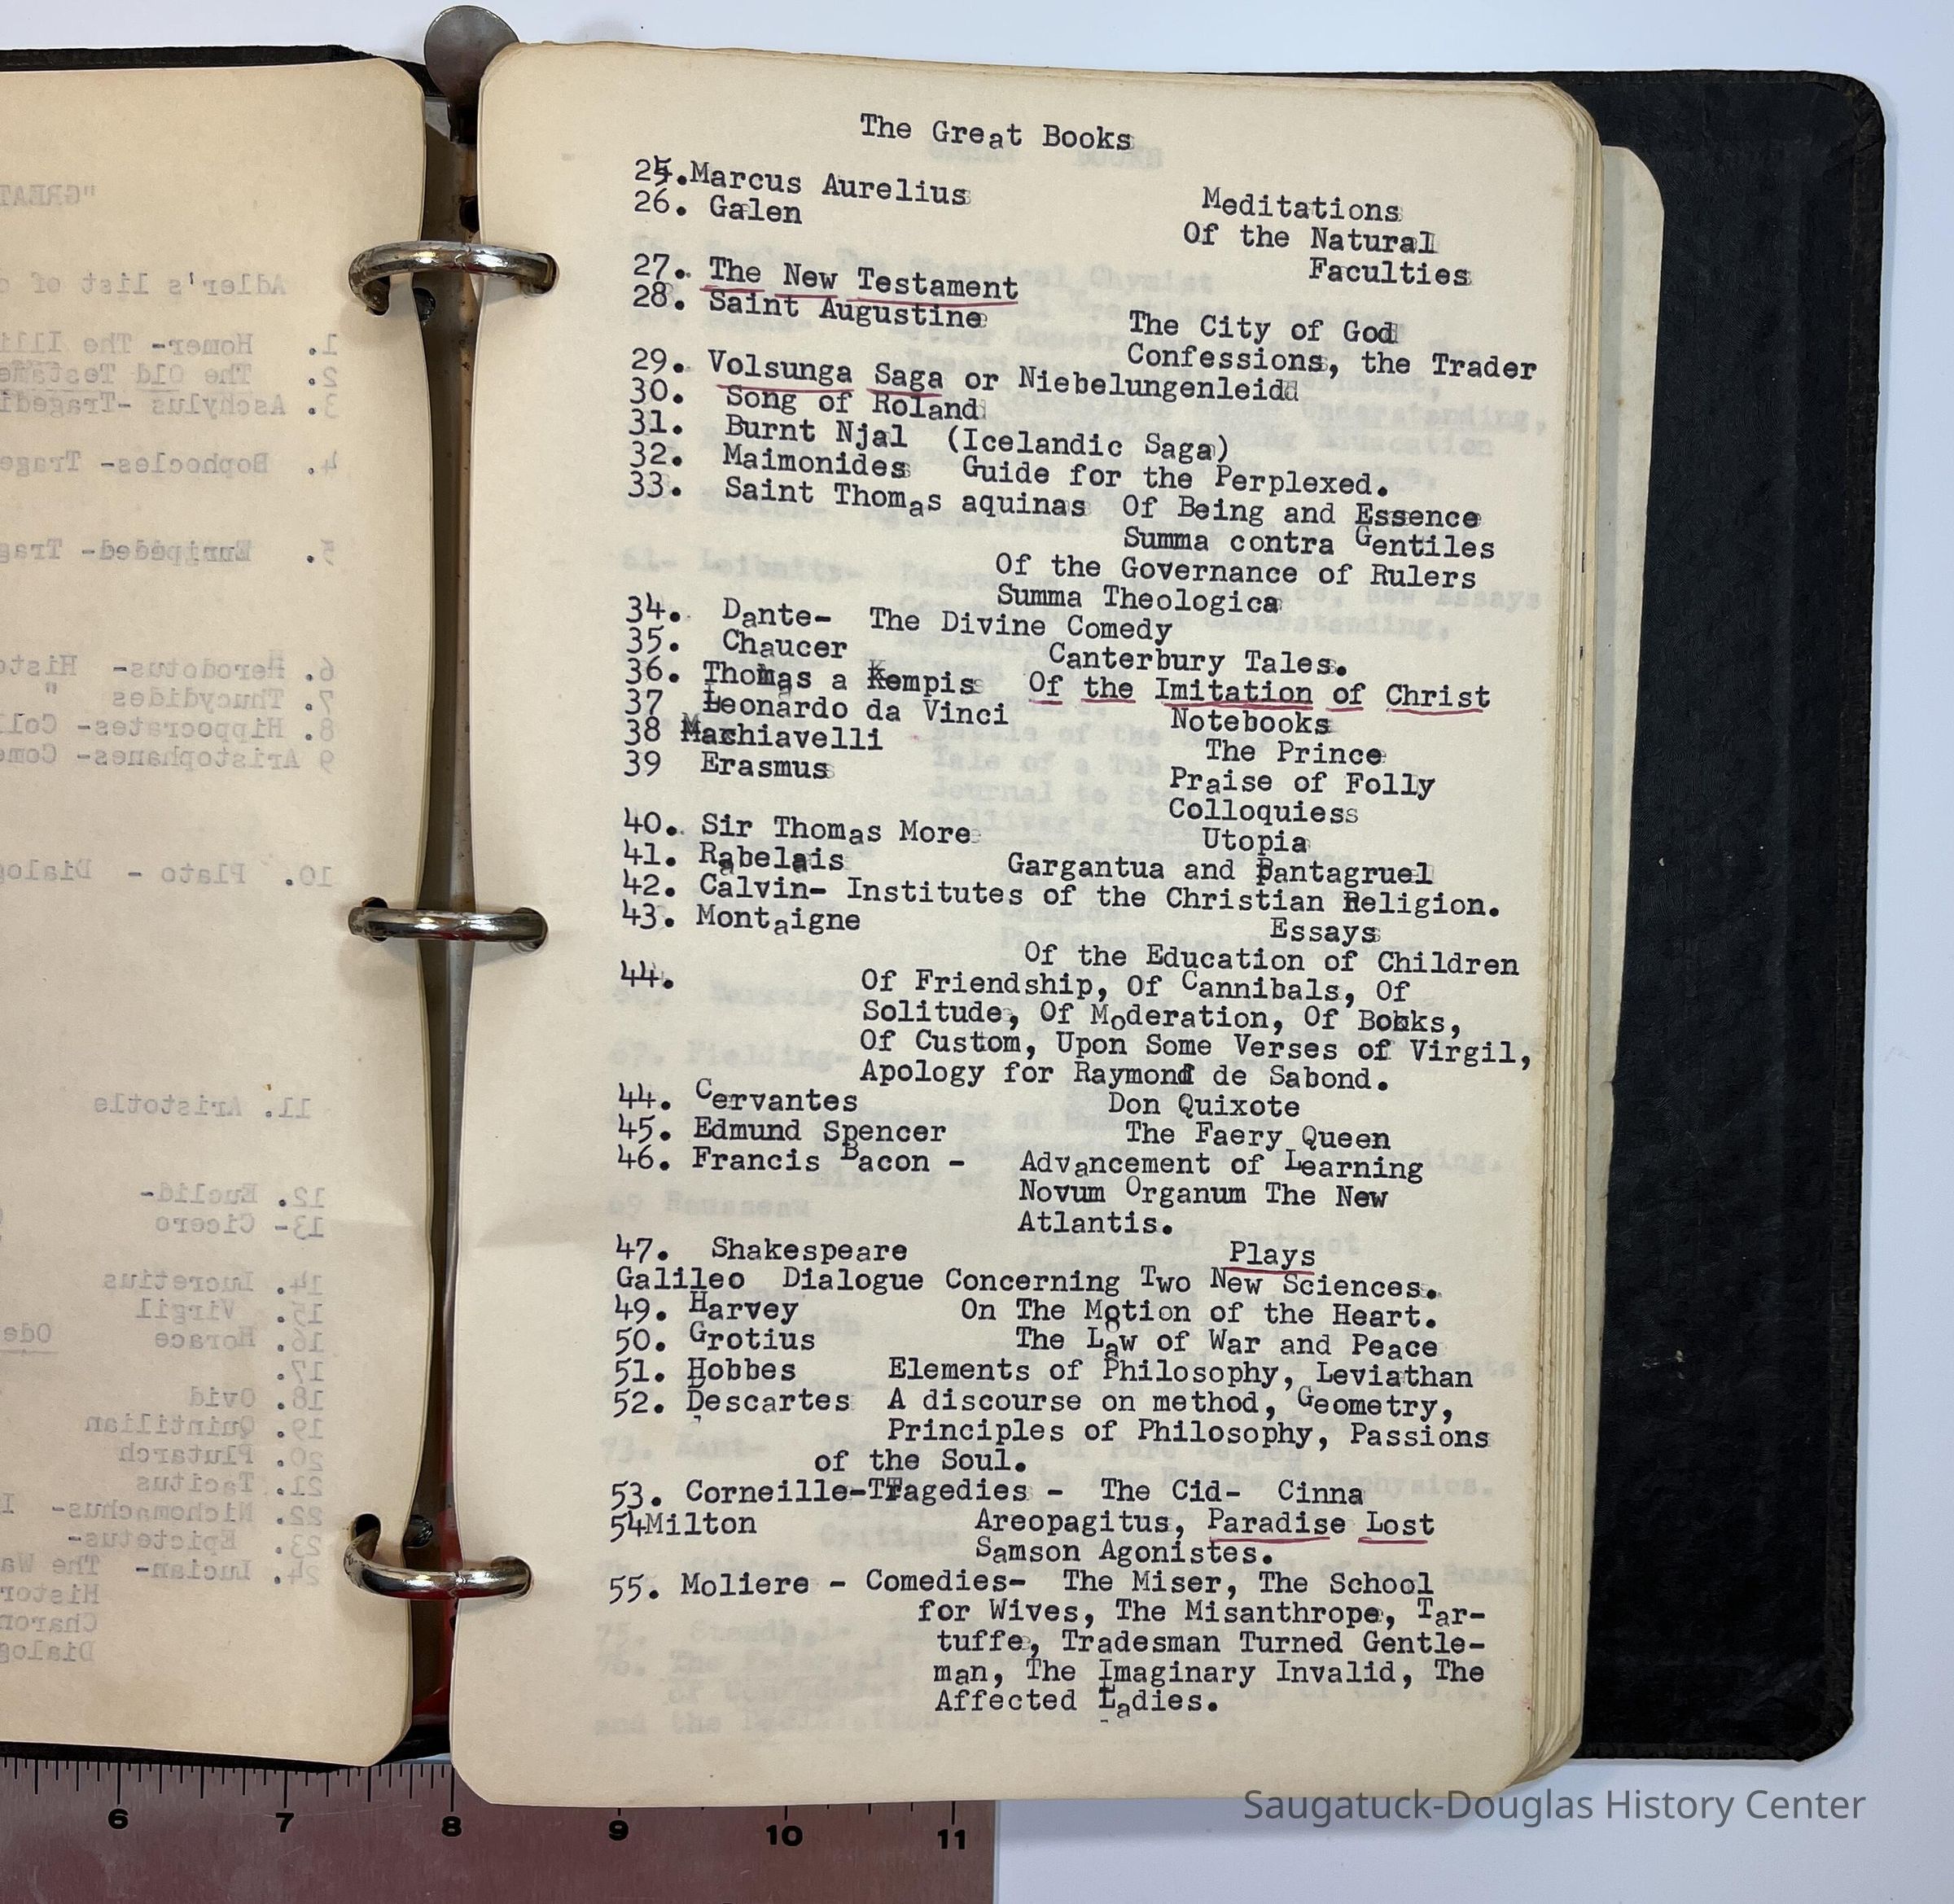 The Great Books
25.Marcus Aurelius Meditations
26. Galen Of the Natural
Faculties
27. The New Testament
28. Saint Augustine The City of God
Confessions, the Trader
29. Volsunga Saga or Niebelungenleid
30. Song of Roland
31. Burnt Njal (Icelandic Saga)
32. Maimonides Guide for the Perplexed.
33. Saint Thomas aquinas Of Being and Essence
Summa contra Gentiles
Of the Governance of Rulers
Summa Theologica
34. Dante- The Divine Comedy
35. Chaucer Canterbury Tales.
36. Thomas a Kempis Of the Imitation of Christ
37 Leonardo da Vinci Notebooks
38 Machiavelli The Prince
39 Erasmus Praise of Folly
Colloquiess
40. Sir Thomas More Utopia
41. Rabelais Gargantua and Pantagruel
42. Calvin- Institutes of the Christian Religion.
43. Montaigne Essays
Of the Education of Children
44. Of Friendship, Of Cannibals, Of
Solitude, Of Moderation, Of Books,
Of Custom, Upon Some Verses of Virgil,
Apology for Raymond de Sabond.
44. Cervantes Don Quixote
45. Edmund Spencer The Faery Queen
46. Francis Bacon - Advancement of Learning
Novum Organum The New
Atlantis.
47. Shakespeare Plays
Galileo Dialogue Concerning Two New Sciences.
49. Harvey On The Motion of the Heart.
50. Grotius The Law of War and Peace
51. Hobbes Elements of Philosophy, Leviathan
52. Descartes A discourse on method, Geometry,
Principles of Philosophy, Passions
of the Soul.
53. Corneille-Tragedies - The Cid- Cinna
54Milton Areopagitus, Paradise Lost
Samson Agonistes.
55. Moliere - Comedies- The Miser, The School
for Wives, The Misanthrope, Tar-
tuffe, Tradesman Turned Gentle-
man, The Imaginary Invalid, The
Affected Ladies.
6 7 8 9 10 11
Saugatuck-Douglas History Center